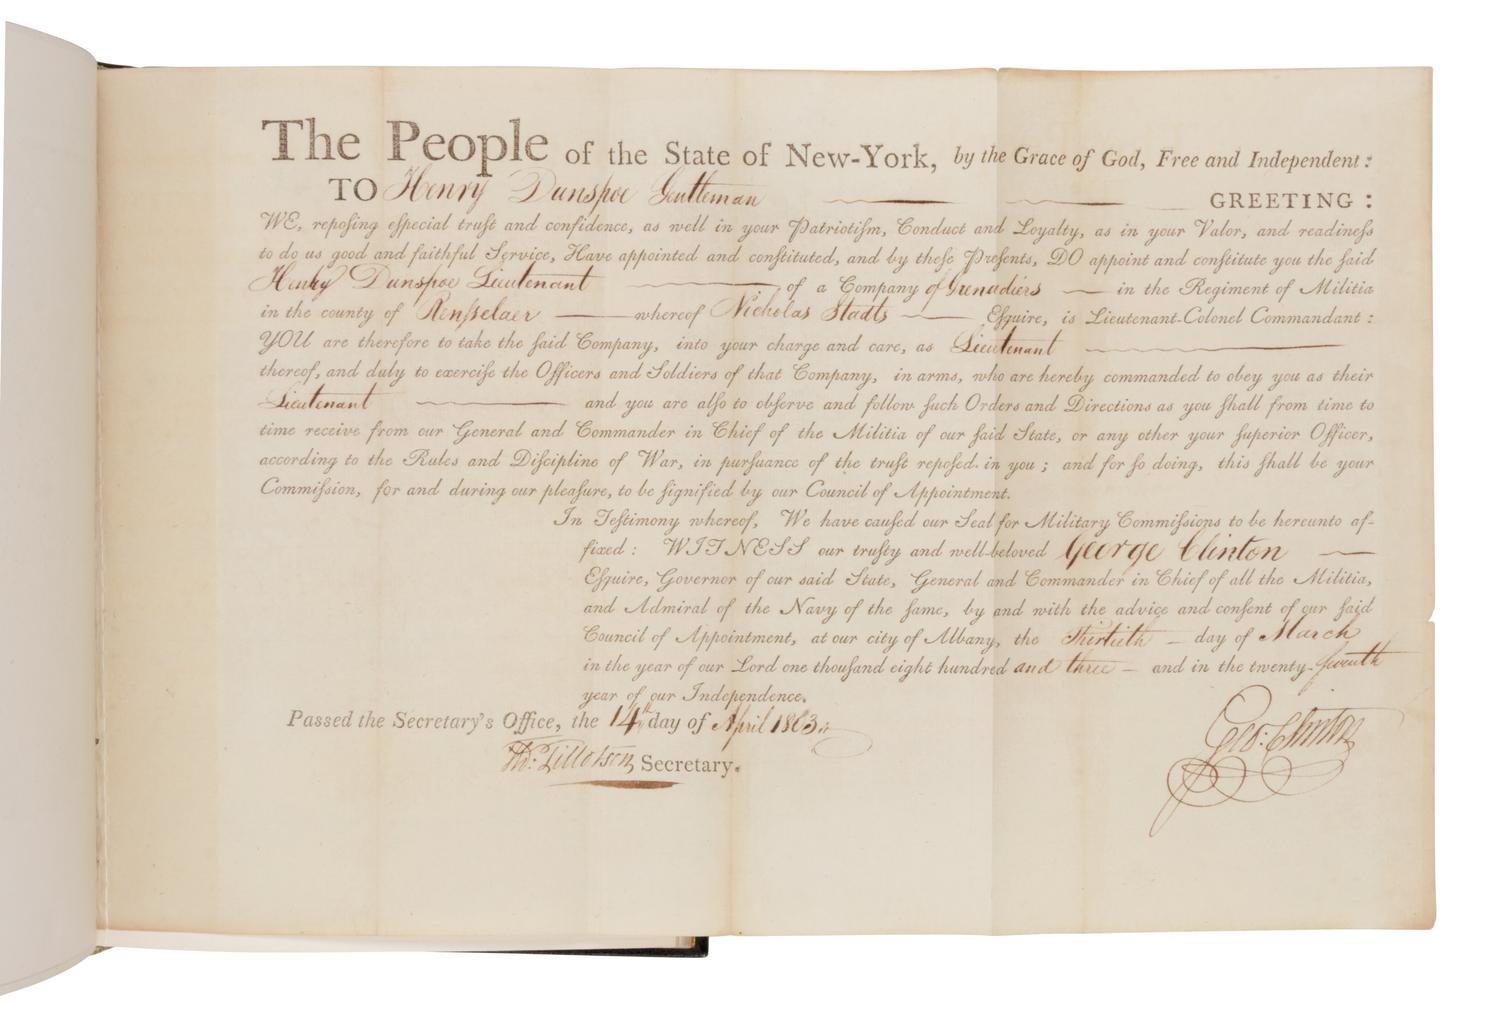 The People of the State of New-York, by the Grace of God, Free and Independent:
TO Henry Dunspoe Gentleman GREETING:
WE, repoſing eſpecial truſt and confidence, as well in your Patriotiſm, Conduct and Loyalty, as in your Valor, and readineſs
to do us good and faithful Service, Have appointed and conſtituted, and by theſe Preſents, DO appoint and conſtitute you the ſaid
Henry Dunspoe Lieutenant of a Company of Grenadiers in the Regiment of Militia
in the county of Renſselaer whereof Nicholas Stadts Eſquire, is Lieutenant-Colonel Commandant:
YOU are therefore to take the ſaid Company, into your charge and care, as Lieutenant
thereof, and duly to exerciſe the Officers and Soldiers of that Company, in arms, who are hereby commanded to obey you as their
Lieutenant and you are alſo to obſerve and follow ſuch Orders and Directions as you ſhall from time to
time receive from our General and Commander in Chief of the Militia of our ſaid State, or any other your ſuperior Officer,
according to the Rules and Diſcipline of War, in purſuance of the truſt repoſed in you; and for ſo doing, this ſhall be your
Commiſſion, for and during our pleaſure, to be ſignified by our Council of Appointment.
In Teſtimony whereof, We have cauſed our Seal for Military Commiſſions to be hereunto af-
fixed: WITNESS our truſty and well-beloved George Clinton
Eſquire, Governor of our said State, General and Commander in Chief of all the Militia,
and Admiral of the Navy of the ſame, by and with the advice and conſent of our ſaid
Council of Appointment, at our city of Albany, the Thirtieth day of March
in the year of our Lord one thouſand eight hundred and three and in the twenty-ſeventh
year of our Independence.
Passed the Secretary's Office, the 14th day of April 1803.
Geo: Clinton
Th: Tillotson Secretary.